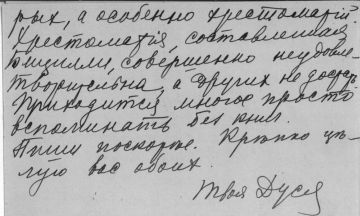 рых, а особенно хрестоматій.
Хрестоматія, составленная
совершенно неудовле-
творительна, а других не достать
Приходится многое просто
вспоминать без книг.
Пиши поскорѣе. Крѣпко цѣ-
лую вас обоих.
Твоя Дуся